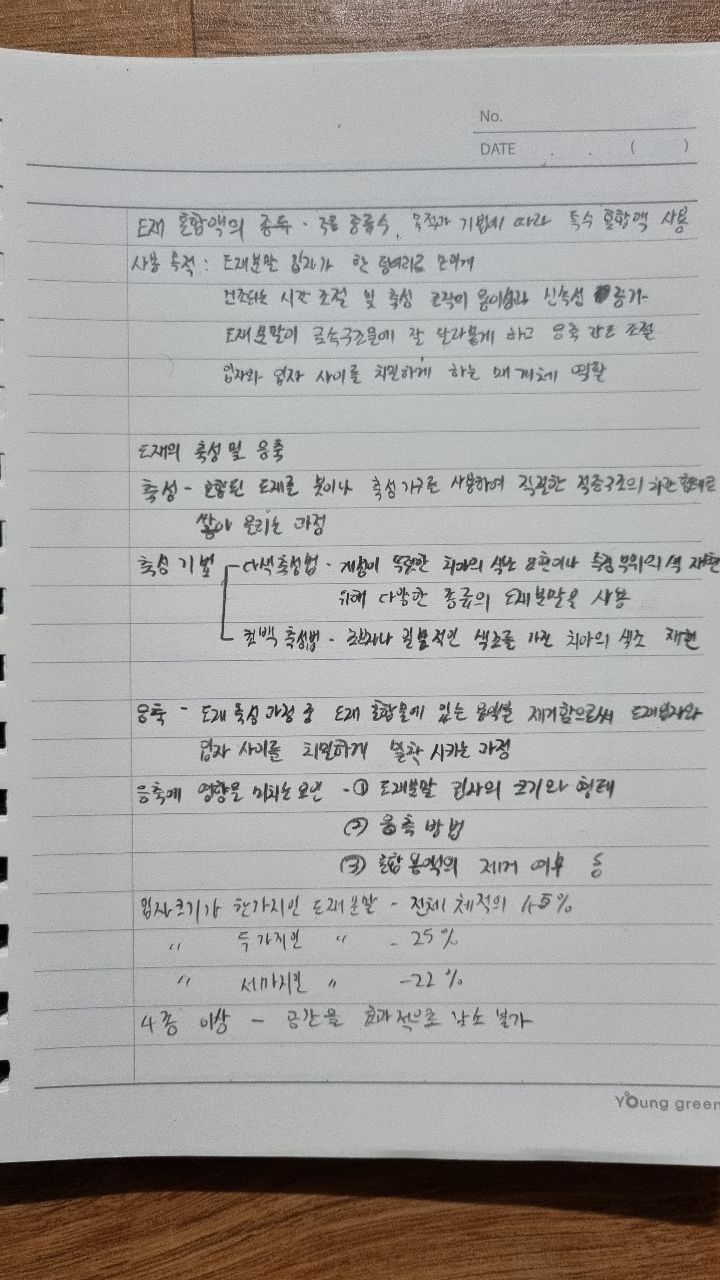 No.
DATE . . ( )
도재 혼합액의 종류 - 주로 증류수, 목적과 기법에 따라 특수 혼합액 사용
사용 목적 : 도재분말 입자가 한 덩어리로 모이게
건조되는 시간 조절 및 축성 조작의 용이성과 신속성 증가
도재분말이 금속구조물에 잘 달라붙게 하고 응축 강도 조절
입자와 입자 사이를 치밀하게 하는 매개체 역할
도재의 축성 및 응축
축성 - 혼합된 도재를 붓이나 축성기구를 사용하여 적절한 적층구조의 치관형태로
쌓아 올리는 과정
축성 기법 다색축성법 - 개성이 뚜렷한 치아의 색조 표현이나 특정 부위의 색 재현
위해 다양한 종류의 도재분말을 사용
축성법 - 색조를 가진 치아의 색조 재현
응축 - 도재 축성 과정 중 도재 혼합물에 있는 용액을 제거함으로써 도재입자와
입자 사이를 치밀하게 밀착 시키는 과정
응축에 영향을 미치는 요인 - ① 도재분말 입자의 크기와 형태
② 응축 방법
③ 혼합용액의 제거 여부 등
입자크기가 한가지인 도재분말 - 전체 체적의 45%
〃 두가지인 〃 - 25%
〃 세가지인 〃 - 22%
4종 이상 - 공간을 효과적으로 감소 불가
Young green